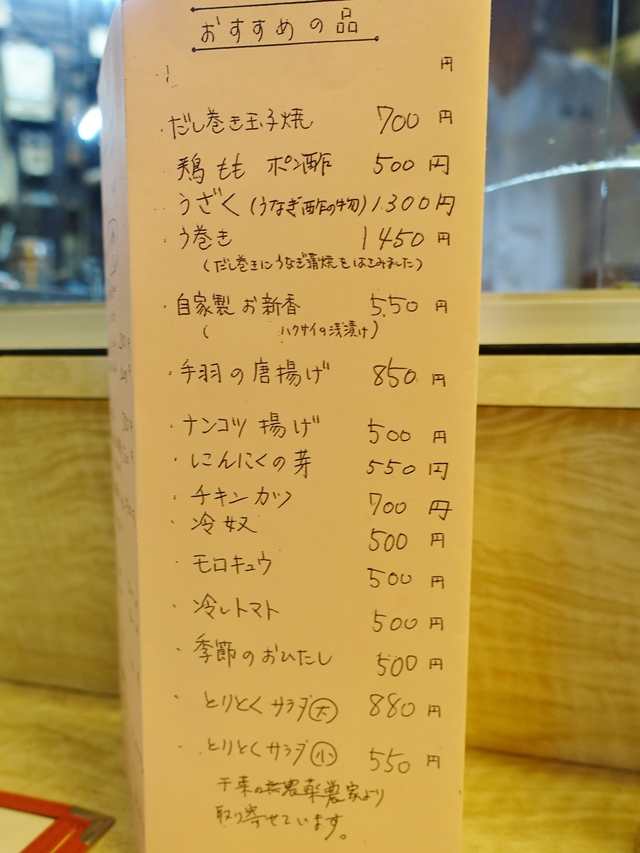 おすすめの品
円
・だし巻き玉子焼 700円
・鶏もも ポン酢 500円
・うざく(うなぎ酢の物) 1.300円
・う巻き 1450円
(だし巻にうなぎ蒲焼をはさみました)
・自家製 お新香 550円
( ハクサイの浅漬け)
・手羽の唐揚げ 850円
・ナンコツ揚げ 500円
・にんにくの芽 550円
・チキンカツ 700円
・冷奴 500円
・モロキュウ 500円
・冷しトマト 500円
・季節のおひたし 500円
・とりとくサラダ㊅ 880円
・とりとくサラダ㊙ 550円
千葉の農家より
取り寄せています。